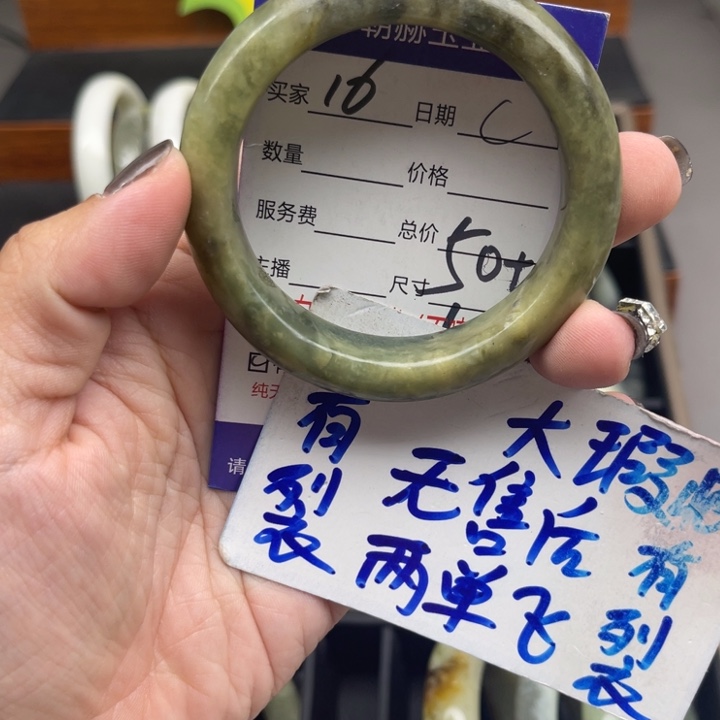 买家 16 日期
数量 价格
服务费 总价
主播 尺寸 50+
纯天
请
有列裂
大瑕疵
无售后
两单飞
有列裂